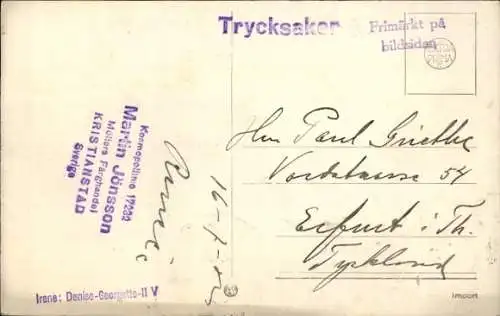 Trycksaker
Frimärkt på
bildsidan
Kosmopolitnio 17232
Martin Jönsson
Möllers Färghandel
KRISTIANSTAD
Sverige
16-7-
Herr Paul Guethe
Nordstrasse 54
Erfurt i. Th.
Tyskland
Irene: Denise-Georgette-II V
Import